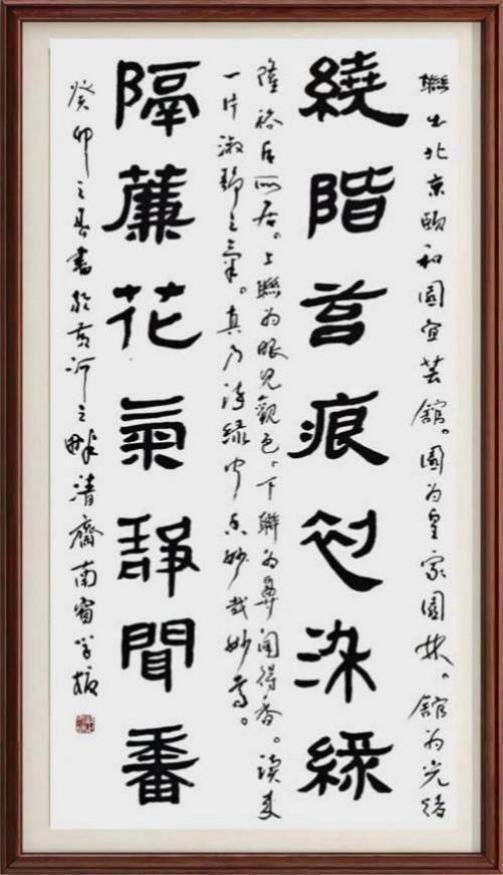 聯出北京頤和園宜芸館。園為皇家園林。館為光緒
繞階苔痕初染綠
隆裕后所居。上聯為眼見觀色、下聯為鼻聞得香。讀來
一片淑靜之氣。真乃妙哉妙焉。
隔簾花氣靜聞香
癸卯之春書於黃河之畔清齋南窗